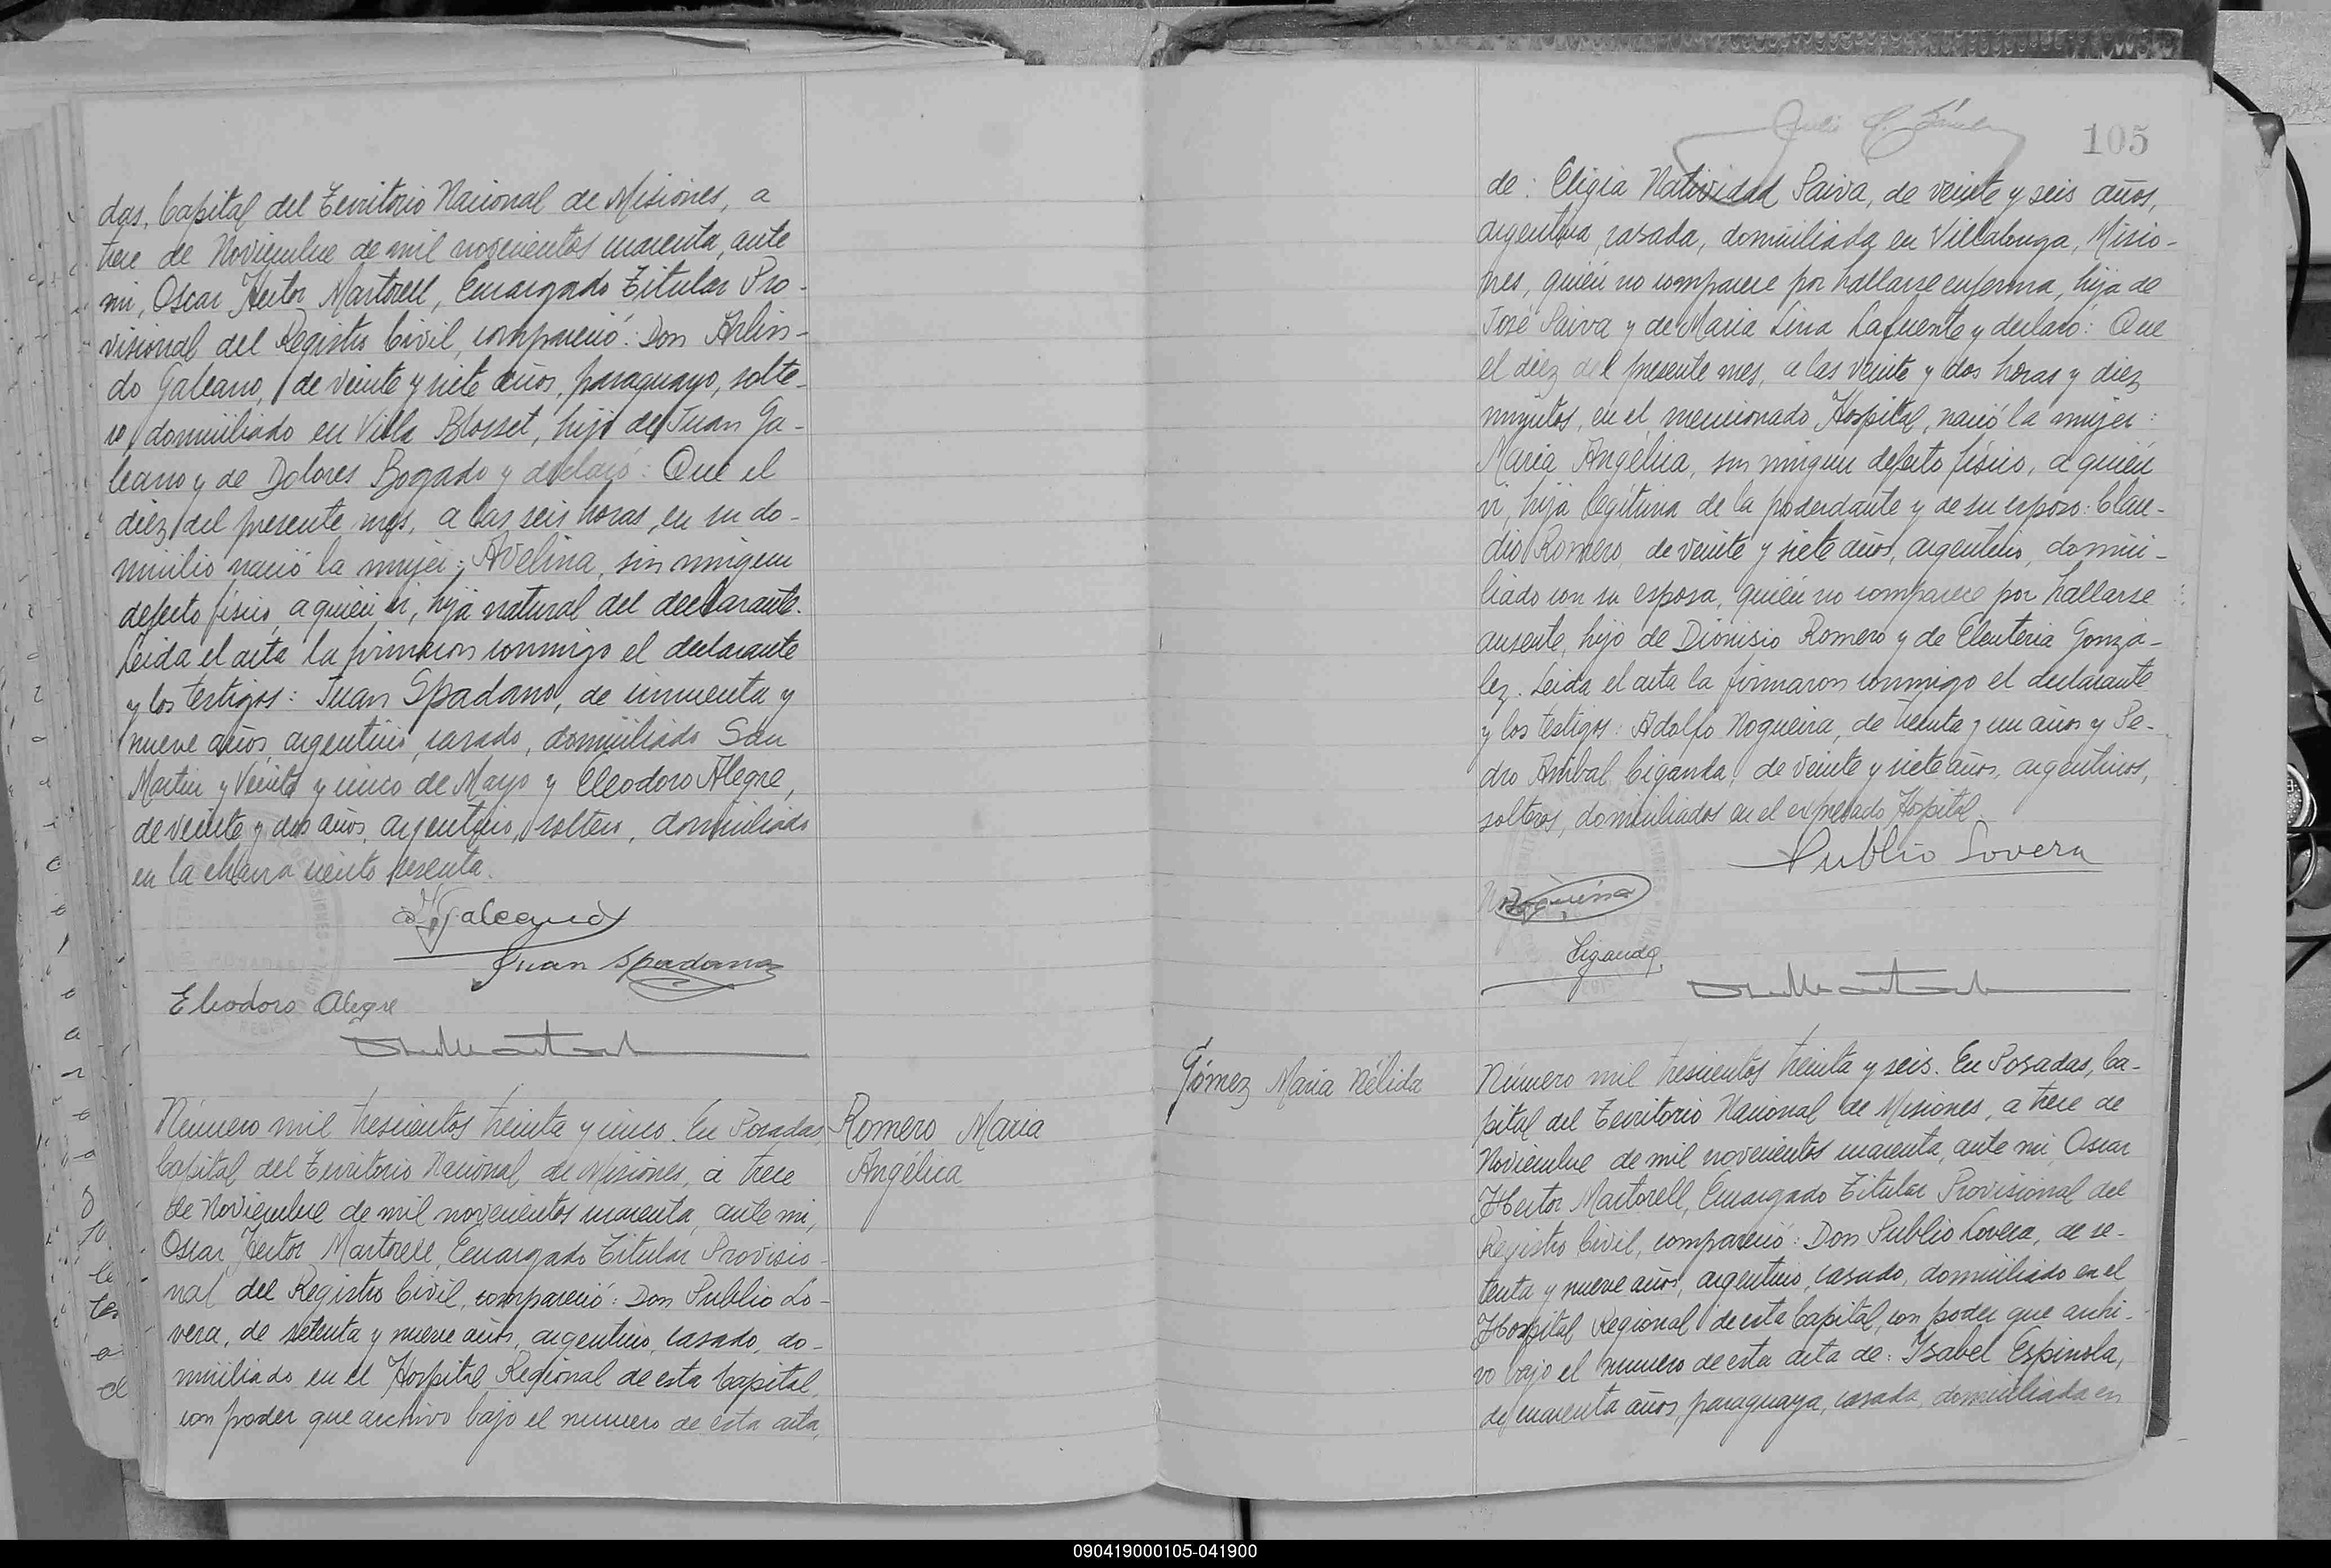 das, Capital del Territorio Nacional de Misiones, a
trece de Noviembre de mil novecientos cuarenta, ante
mi, Oscar Hector Martorell, Encargado Titular Pro-
visional del Registro Civil, compareció: Don Arlin-
do Galeano, de veinte y siete años, paraguayo, solte-
ro, domiciliado en Villa Blosset, hijo de Juan Ga-
leano y de Dolores Bogado y declaró: Que el
diez del presente mes, a las seis horas, en su do-
micilio nació la mujer: Avelina, sin ningun
defecto físico, a quién vi, hija natural del declarante.
Leida el acta la firmaron conmigo el declarante
y los testigos: Juan Spadano, de cincuenta y
nueve años, argentino, casado, domiciliado San
Martin y Veinte y cinco de Mayo y Eleodoro Alegre,
de veinte y dos años, argentino, soltero, domiciliado
en la chacra ciento sesenta.
Galeano
Juan Spadano
Eleodoro Alegre
Número mil trescientos treinta y cinco. En Posadas,
Capital del Territorio Nacional de Misiones, a trece
de Noviembre de mil novecientos cuarenta, ante mi,
Oscar Hector Martorell, Encargado Titular Provisio-
nal del Registro Civil, compareció: Don Publio Lo-
vera, de setenta y nueve años, argentino, casado, do-
miciliado en el Hospital Regional de esta Capital,
con poder que archivo bajo el numero de esta acta,
Romero Maria
Angélica
105
de: Eligia Natividad Paiva, de veinte y seis años,
argentina, casada, domiciliada en Villalonga, Misio-
nes, quién no comparece por hallarse enferma, hija de
José Paiva y de Maria Lina Lafuente y declaró: Que
el diez del presente mes, a las veinte y dos horas y diez
minutos, en el mencionado Hospital, nació la mujer:
Maria Angélica, sin ningun defecto físico, a quién
vi, hija legítima de la poderdante y de su esposo: Clau-
dio Romero, de veinte y siete años, argentino, domici-
liado con su esposa, quién no comparece por hallarse
ausente, hijo de Dionisio Romero y de Eleuteria Gonzá-
lez. Leida el acta la firmaron conmigo el declarante
y los testigos: Adolfo Nogueira, de treinta y un años y Pe-
dro Anibal Ciganda, de veinte y siete años, argentinos,
solteros, domiciliados en el expresado Hospital
Publio Lovera
Nogueira
Ciganda
Gómez Maria Nélida
Número mil trescientos treinta y seis. En Posadas, Ca-
pital del Territorio Nacional de Misiones, a trece de
Noviembre de mil novecientos cuarenta, ante mi, Oscar
Hector Martorell, Encargado Titular Provisional del
Registro Civil, compareció: Don Publio Lovera, de se-
tenta y nueve años, argentino, casado, domiciliado en el
Hospital Regional de esta Capital, con poder que archi-
vo bajo el numero de esta acta de: Isabel Espinola,
de cuarenta años, paraguaya, casada, domiciliada en
090419000105-041900